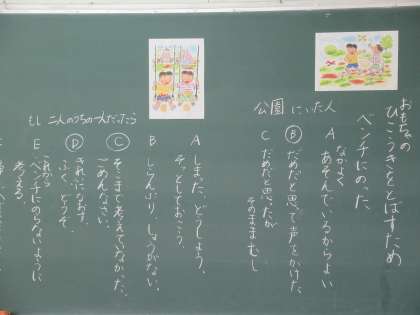 おもちゃの
ひこうきをとばすため
ベンチにのった、
公園にいた人
A なかよく
あそんでいるからよい
B だめだと思って声をかけた、
C だめだと思ったが
そのままむし
もし二人のうちの一人だったら
A しまった、どうしよう、
そっとしておこう、
B しらんぷり、しょうがない、
C そこまで考えていなかった、
ごめんなさい、
D きれいになおす
ふく、どうぞ、
E これから
ベンチにのらないように
考える、